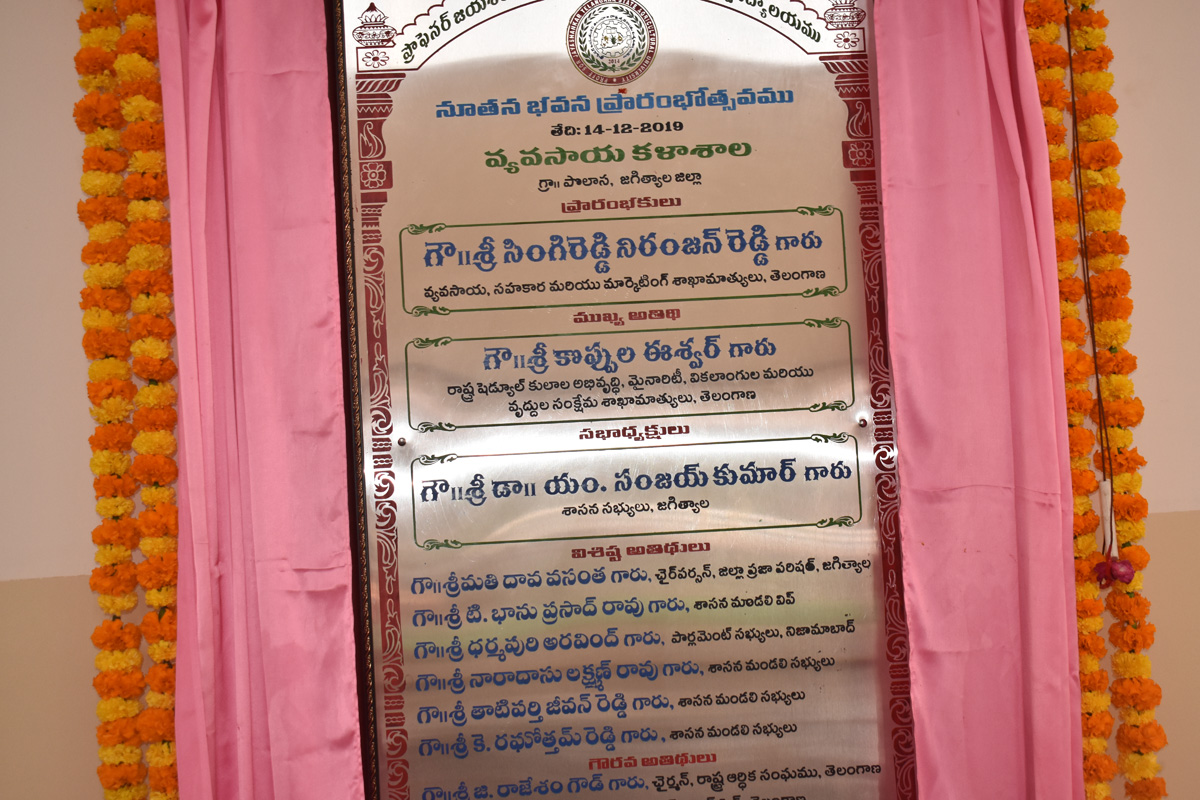 ప్రొఫెసర్ జయశ
్యాలయము
నూతన భవన ప్రారంభోత్సవము
తేది: 14-12-2019
వ్యవసాయ కళాశాల
గ్రా॥ పొలాస, జగిత్యాల జిల్లా
ప్రారంభకులు
గౌ॥శ్రీ సింగిరెడ్డి నిరంజన్ రెడ్డి గారు
వ్యవసాయ, సహకార మరియు మార్కెటింగ్ శాఖామాత్యులు, తెలంగాణ
ముఖ్య అతిథి
గౌ॥శ్రీ కొప్పుల ఈశ్వర్ గారు
రాష్ట్ర షెడ్యూల్ కులాల అభివృద్ధి, మైనారిటీ, వికలాంగుల మరియు
వృద్ధుల సంక్షేమ శాఖామాత్యులు, తెలంగాణ
సభాధ్యక్షులు
గౌ॥శ్రీ డా॥ యం. సంజయ్ కుమార్ గారు
శాసన సభ్యులు, జగిత్యాల
విశిష్ట అతిథులు
గౌ॥శ్రీమతి దావ వసంత గారు, ఛైర్‌పర్సన్, జిల్లా ప్రజా పరిషత్, జగిత్యాల
గౌ॥శ్రీ టి. భాను ప్రసాద్ రావు గారు, శాసన మండలి విప్
గౌ॥శ్రీ ధర్మపురి అరవింద్ గారు, పార్లమెంట్ సభ్యులు, నిజామాబాద్
గౌ॥శ్రీ నారాదాసు లక్ష్మణ్ రావు గారు, శాసన మండలి సభ్యులు
గౌ॥శ్రీ తాటిపర్తి జీవన్ రెడ్డి గారు, శాసన మండలి సభ్యులు
గౌ॥శ్రీ కె. రఘోత్తమ్ రెడ్డి గారు, శాసన మండలి సభ్యులు
గౌరవ అతిథులు
గౌ॥శ్రీ జి. రాజేశం గౌడ్ గారు, ఛైర్మన్, రాష్ట్ర ఆర్థిక సంఘము, తెలంగాణ